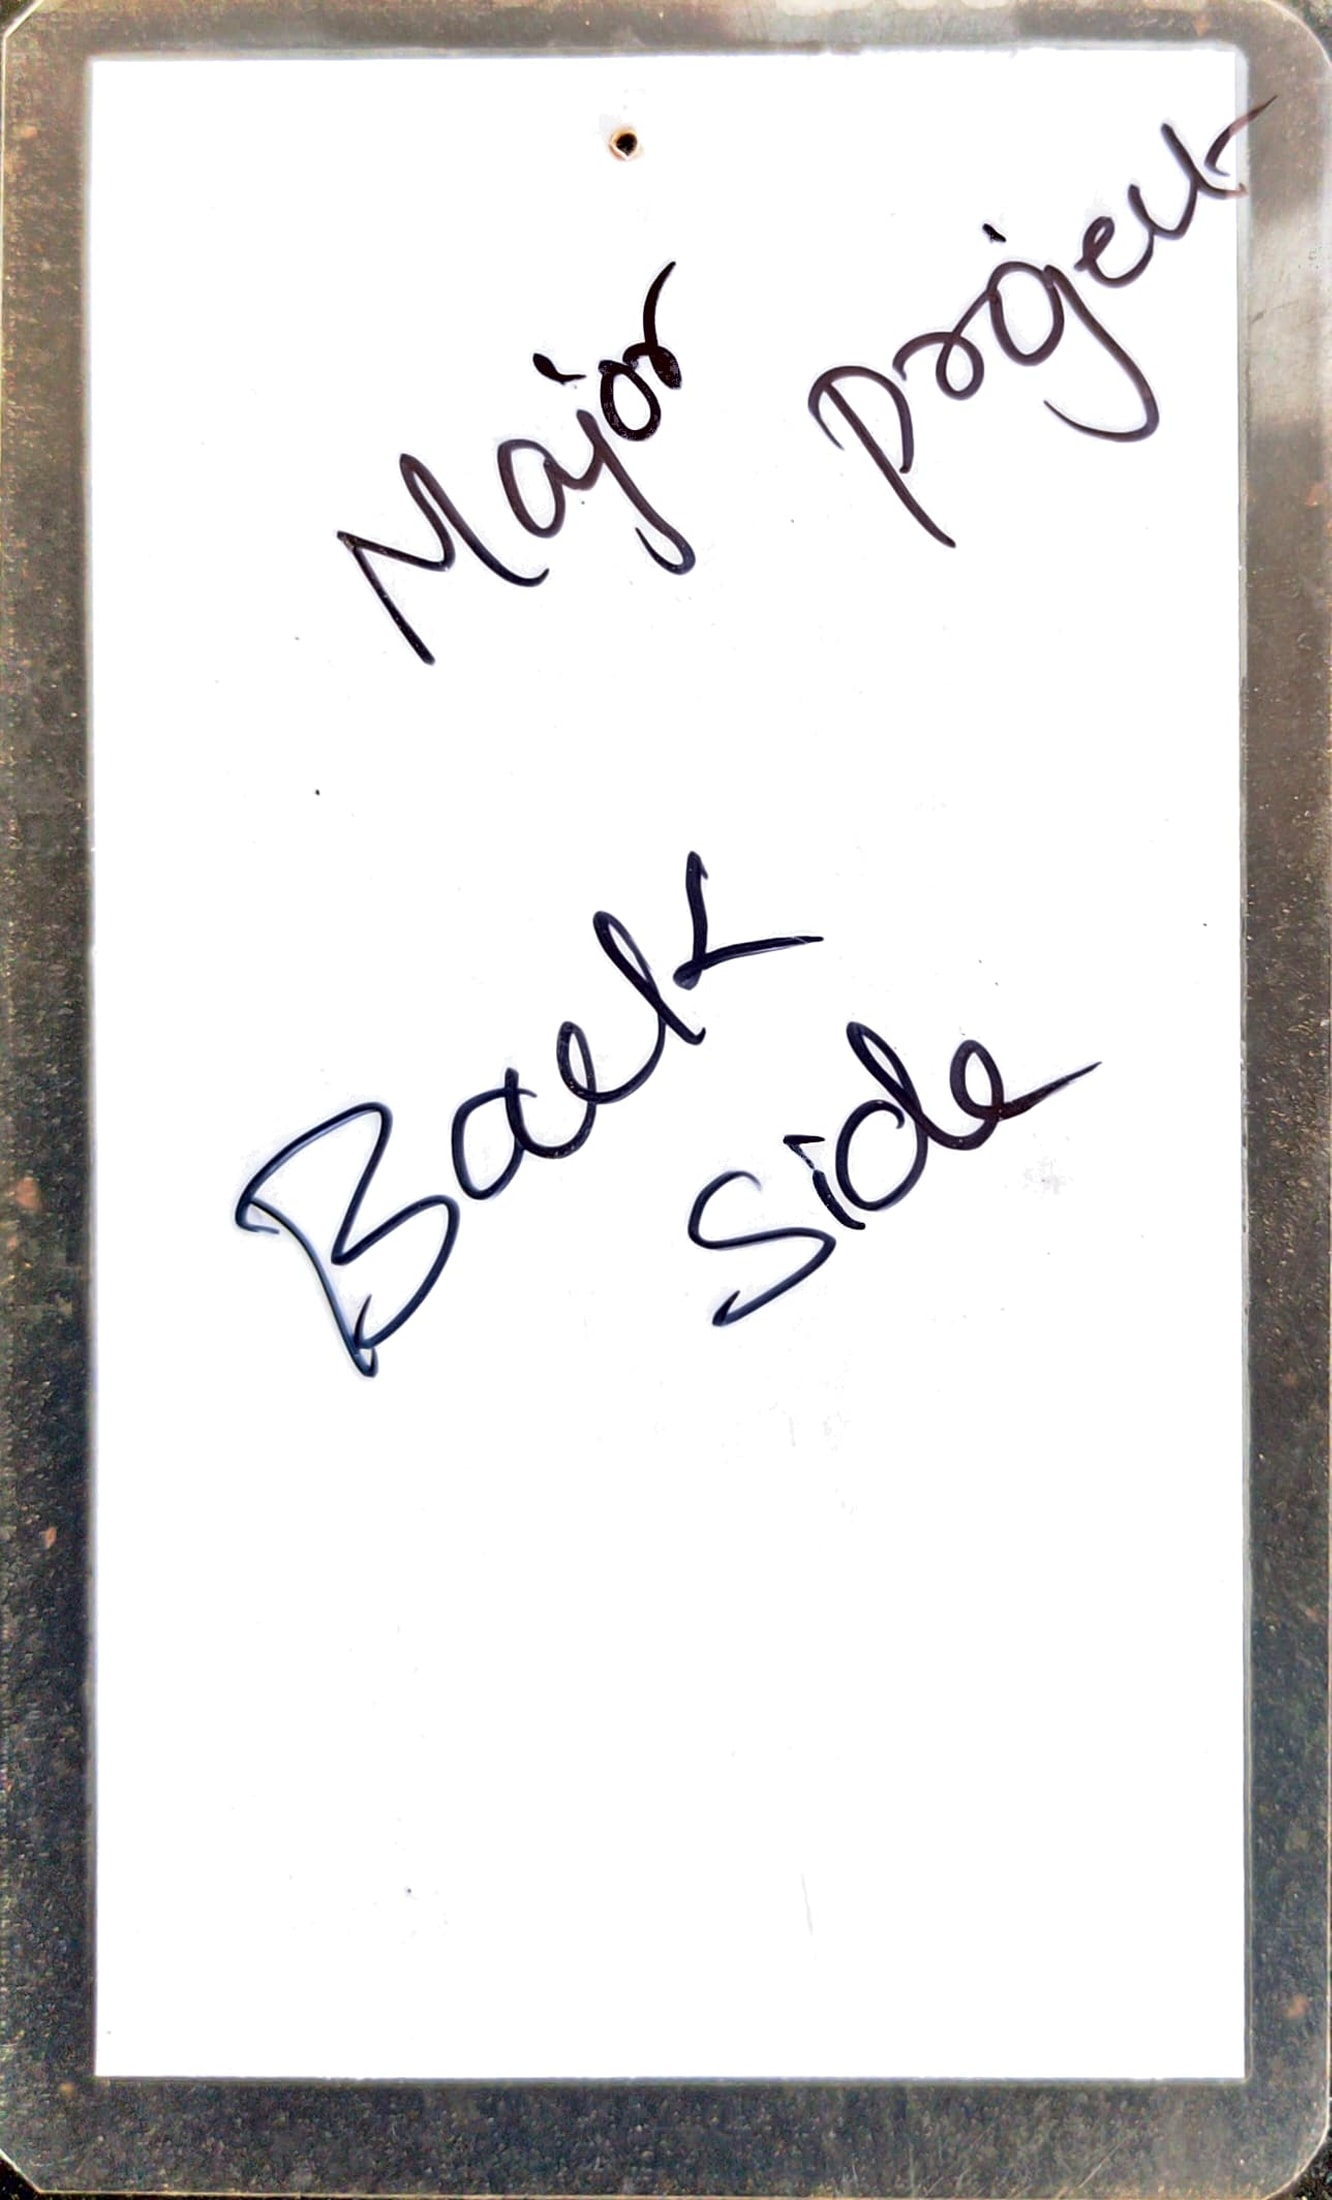 Major project
Back
Side